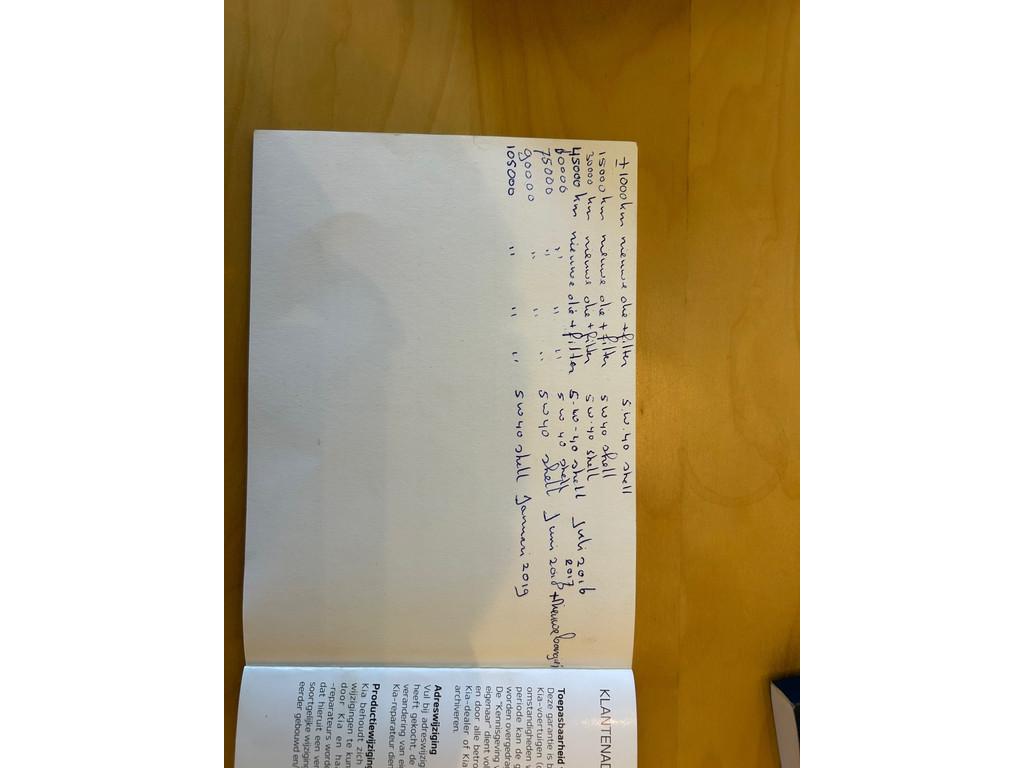 ± 1000 km nieuwe olie + filter 5.W.40 shell
15000 km nieuwe olie + filter 5W40 shell
30000 km nieuwe olie + filter 5W.40 shell
45000 km nieuwe olie + filter 5-W-40 shell Juli 2016
60000 '' '' '' 5 W 40 shell 2017
75000 '' '' 5W40 shell Juni 2018 + Nieuwe
90000 '' ''
105000 '' '' '' 5W40 shell Januari 2019
KLANTENAD
Toepasbaarheid
Deze garantie is b
Kia-voertuigen (
omstandigheden
periode kan de g
worden overgedra
De "Kennisgeving
eigenaar dient vo
en door alle betro
Kia-dealer of Kia
archiveren.
Adreswijziging
Vul bij adreswijzig
heeft gekocht, de
verandering van ei
Kia-reparateur dien
Productiewijziging
Kia behoudt zich
wijzigingen te kun
door Kia en ha
-reparateurs word
dat hieruit een ver
soortgelijke wijziging
eerder gebouwd en/